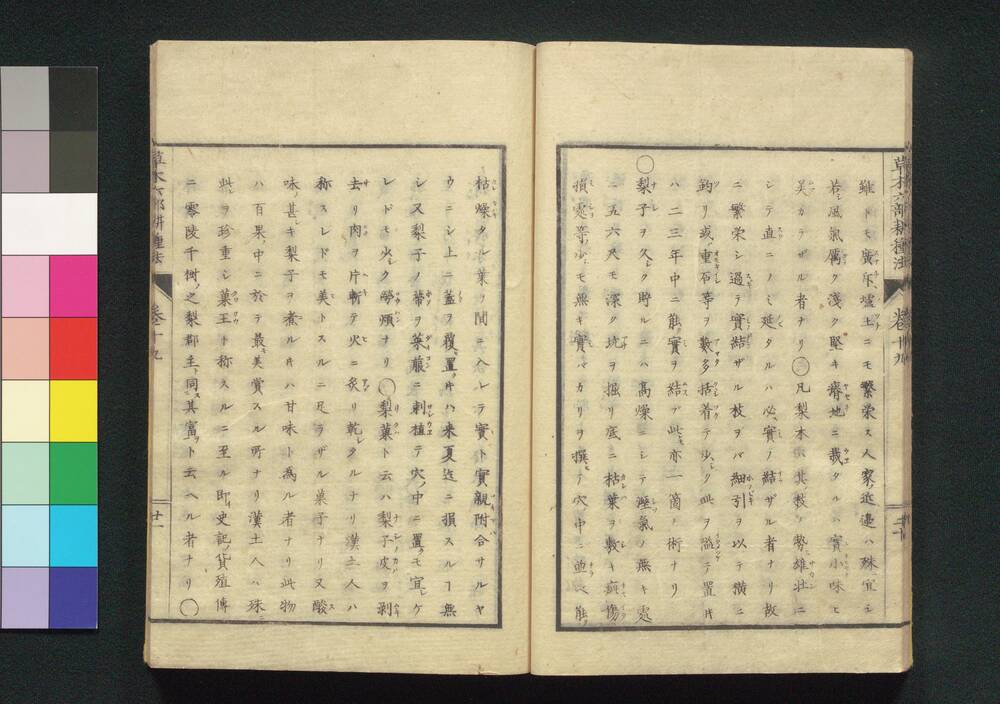 草木六部耕種法 卷十九
雖トモ廣斥壚土ニモ繁榮ス人家近邊ハ殊宜シ
若シ風氣厲ク淺ク堅キ瘠地ニ栽タルハ實小味ヒ
美カラザル者ナリ〇凡梨木ハ其枝ノ勢雄壮ニ
シテ直ニノミ延タルハ必ス實ノ結ザル者ナリ故
ニ繁榮シ過テ實結ザル枝ヲバ細引ヲ以テ横ニ
釣リ或ハ重石等ヲ數多括着テ少シク此ヲ溢テ置片
ハ二三年中ニ能ク實ヲ結ブ此モ亦一箇ノ術ナリ
〇梨子ヲ久シク貯ルニハ高燥ニシテ溼氣ノ無キ處
ニ五六尺モ深ク坑ヲ掘リ底ニ枯葉ヲ敷キ疵傷
損處等少シモ無キ實バカリヲ撰テ穴中ニ並ベ能ク
二十
枯燥タル葉ヲ間ニ入レテ實ト實親附合サルヤ
ウニシ上ニ蓋ヲ覆置片ハ来夏迄ニ損スルヿ無
シ又梨子ノ蔕ヲ萊菔ニ刺植テ穴ノ中ニ置クモ宜シケ
レドモ少シク勞煩ナリ〇梨菓ト云ハ梨子皮ヲ剥
去リ肉ヲ片斬テ火ニ炙リ乾シタルナリ漢土人ハ
称スレドモ美トスルニ足ラザル菓子ナリ又酸
味甚キ梨子ヲ煮ル片ハ甘味ト為ル者ナリ此物
ハ百果ノ中ニ於テ最モ美賞スル所ナリ漢土人ハ殊ニ
此ヲ珍重シ菓王ト称スルニ至ル即チ史記ノ貨殖傳
ニ零陵千樹之梨郡主ト同ス其富ヲト云ヘル者ナリ〇
草木六部耕種法 卷十九
廿一